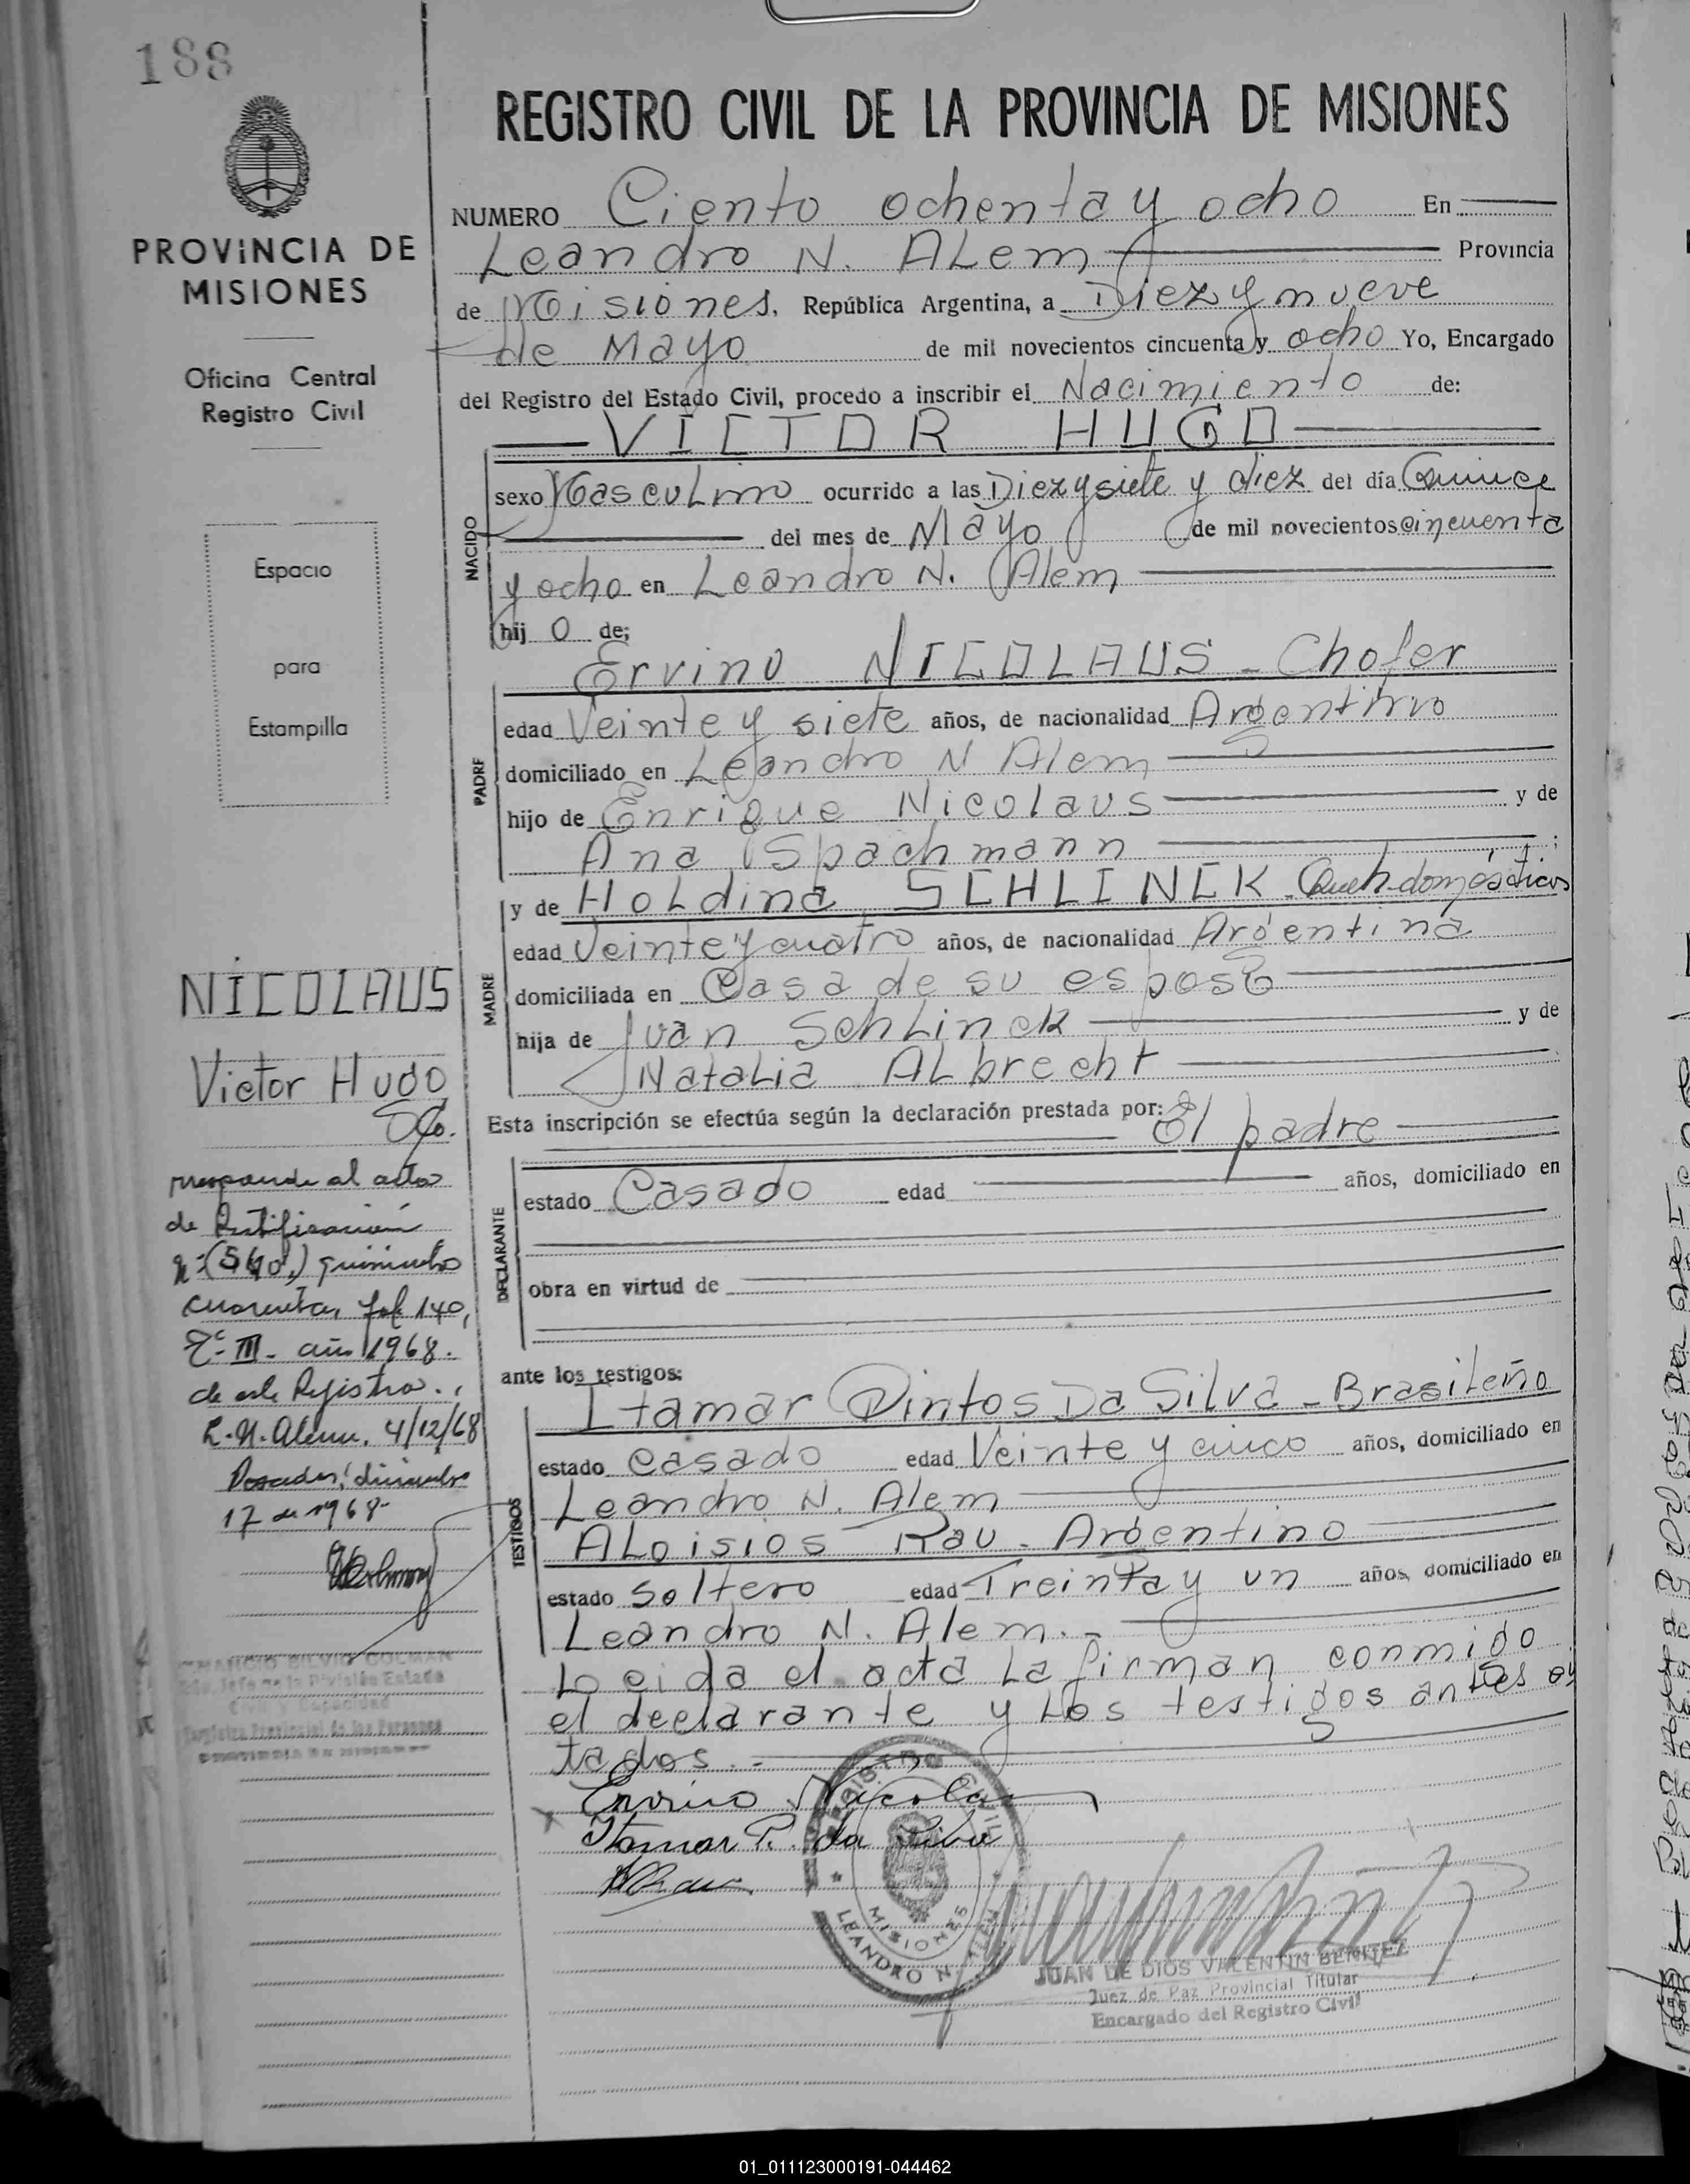 188
PROVINCIA DE
MISIONES
Oficina Central
Registro Civil
Espacio
para
Estampilla
NICOLAUS
Victor Hugo
al acta
de Rectificación
nº (540,) quinientos
cuarenta, fol 140,
Tº III - año 1968.
de este Registro.
L. N. Alem, 4/12/68
Posadas, diciembre
17 de 1968-
REGISTRO CIVIL DE LA PROVINCIA DE MISIONES
NUMERO Ciento ochenta y ocho En
Leandro N. ALem Provincia
de Misiones, República Argentina, a Diez y nueve
de Mayo de mil novecientos cincuenta y ocho Yo, Encargado
del Registro del Estado Civil, procedo a inscribir el Nacimiento de:
VICTOR HUGO
NACIDO
sexo MascuLino ocurrido a las Diez y siete y diez del día Quince
del mes de Mayo de mil novecientos cincuenta
y ocho en Leandro N. Alem
hij o de;
Ervino NICOLAUS - Chofer
PADRE
edad Veinte y siete años, de nacionalidad Argentino
domiciliado en Leandro N Alem
hijo de Enrique Nicolaus y de
Ana Spachmann ;
y de HoLdina SCHLINCK - Queh-domésticos
MADRE
edad Veinte y cuatro años, de nacionalidad Argentina
domiciliada en Casa de su esposo
hija de Juan SchLinck y de
NataLia ALbrecht
Esta inscripción se efectúa según la declaración prestada por: El padre
DECLARANTE
estado Casado edad años, domiciliado en
obra en virtud de
ante los testigos:
Itamar Pintos Da SiLva - BrasiLeño
TESTIGOS
estado casado edad Veinte y cinco años, domiciliado en
Leandro N. Alem
ALoisios Rau - Argentino
estado soltero edad Treinta y un años, domiciliado en
Leandro N. Alem. -
Leida el acta La firman conmigo
el declarante y Los testigos antes ci
tados. -
Ervino Nicolaus
Itamar P. da Silva
REGISTRO CIVIL
MISIONES
LEANDRO N. ALEM
JUAN DE DIOS VALENTIN BENITEZ
Juez de Paz Provincial Titular
Encargado del Registro Civil
01_011123000191-044462